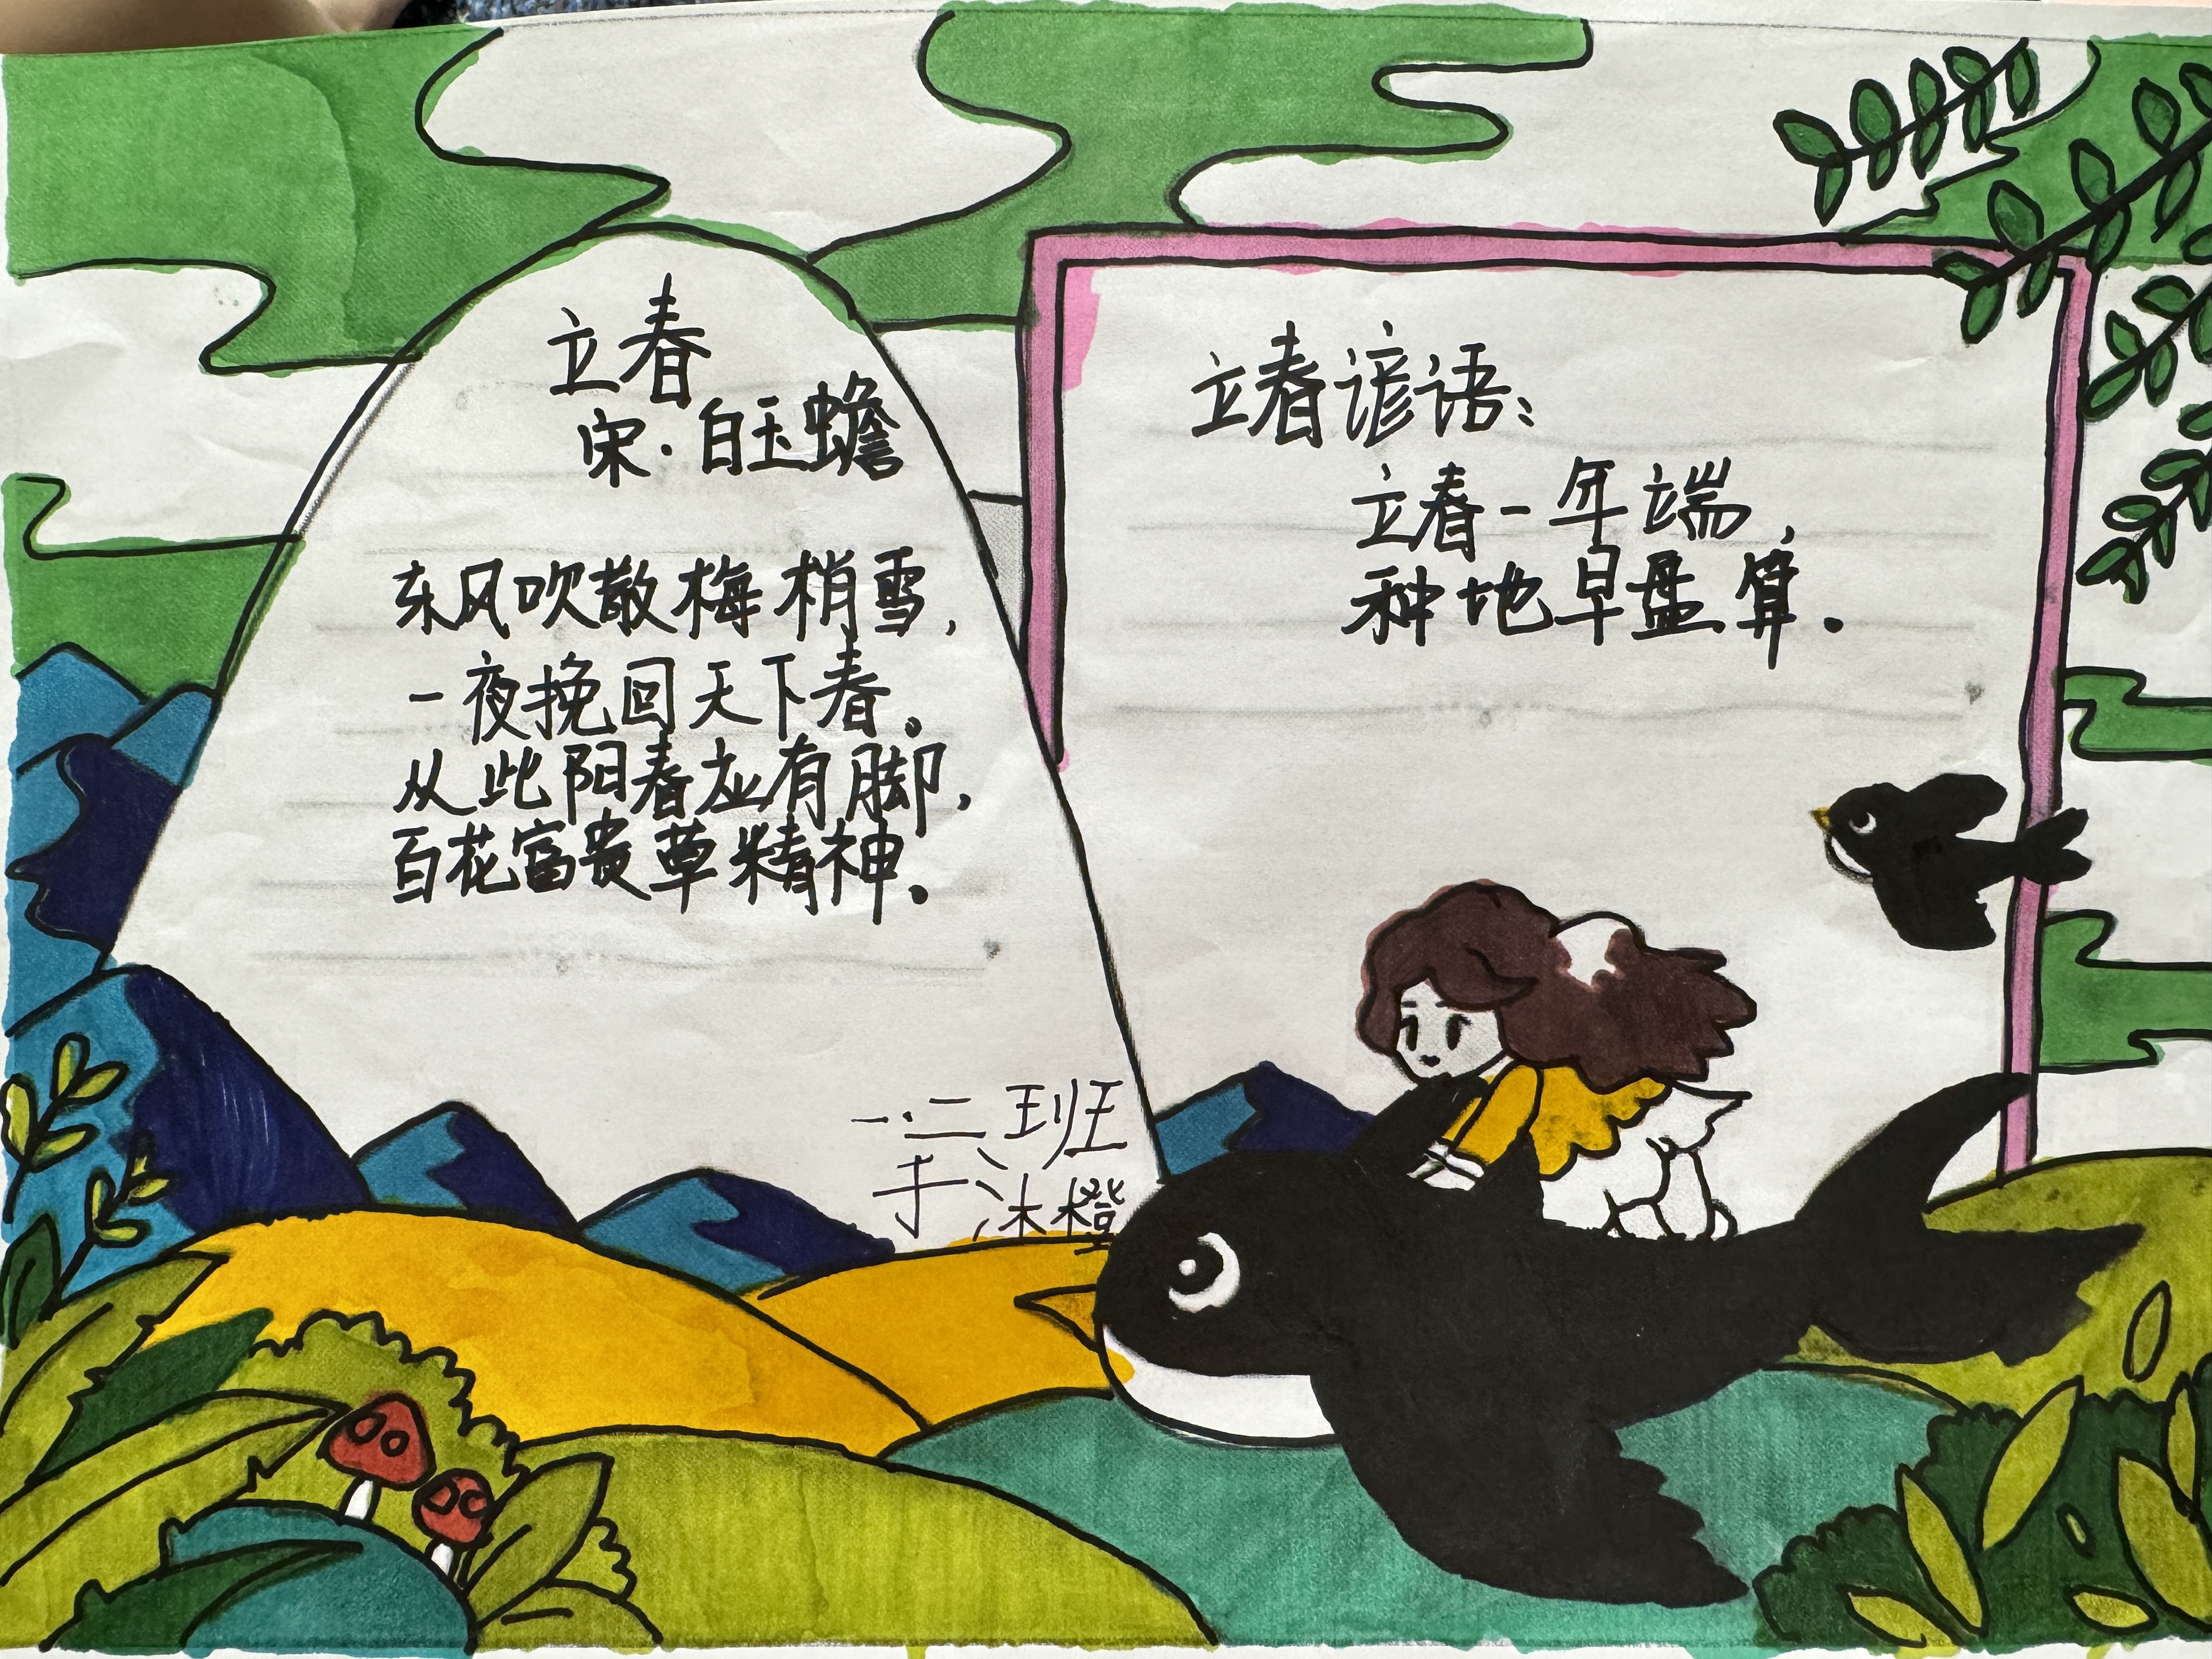 立春
宋·白玉蟾
东风吹散梅梢雪，
一夜挽回天下春。
从此阳春应有脚，
百花富贵草精神。
一.二班
于沐橙
立春谚语：
立春一年端，
种地早盘算.